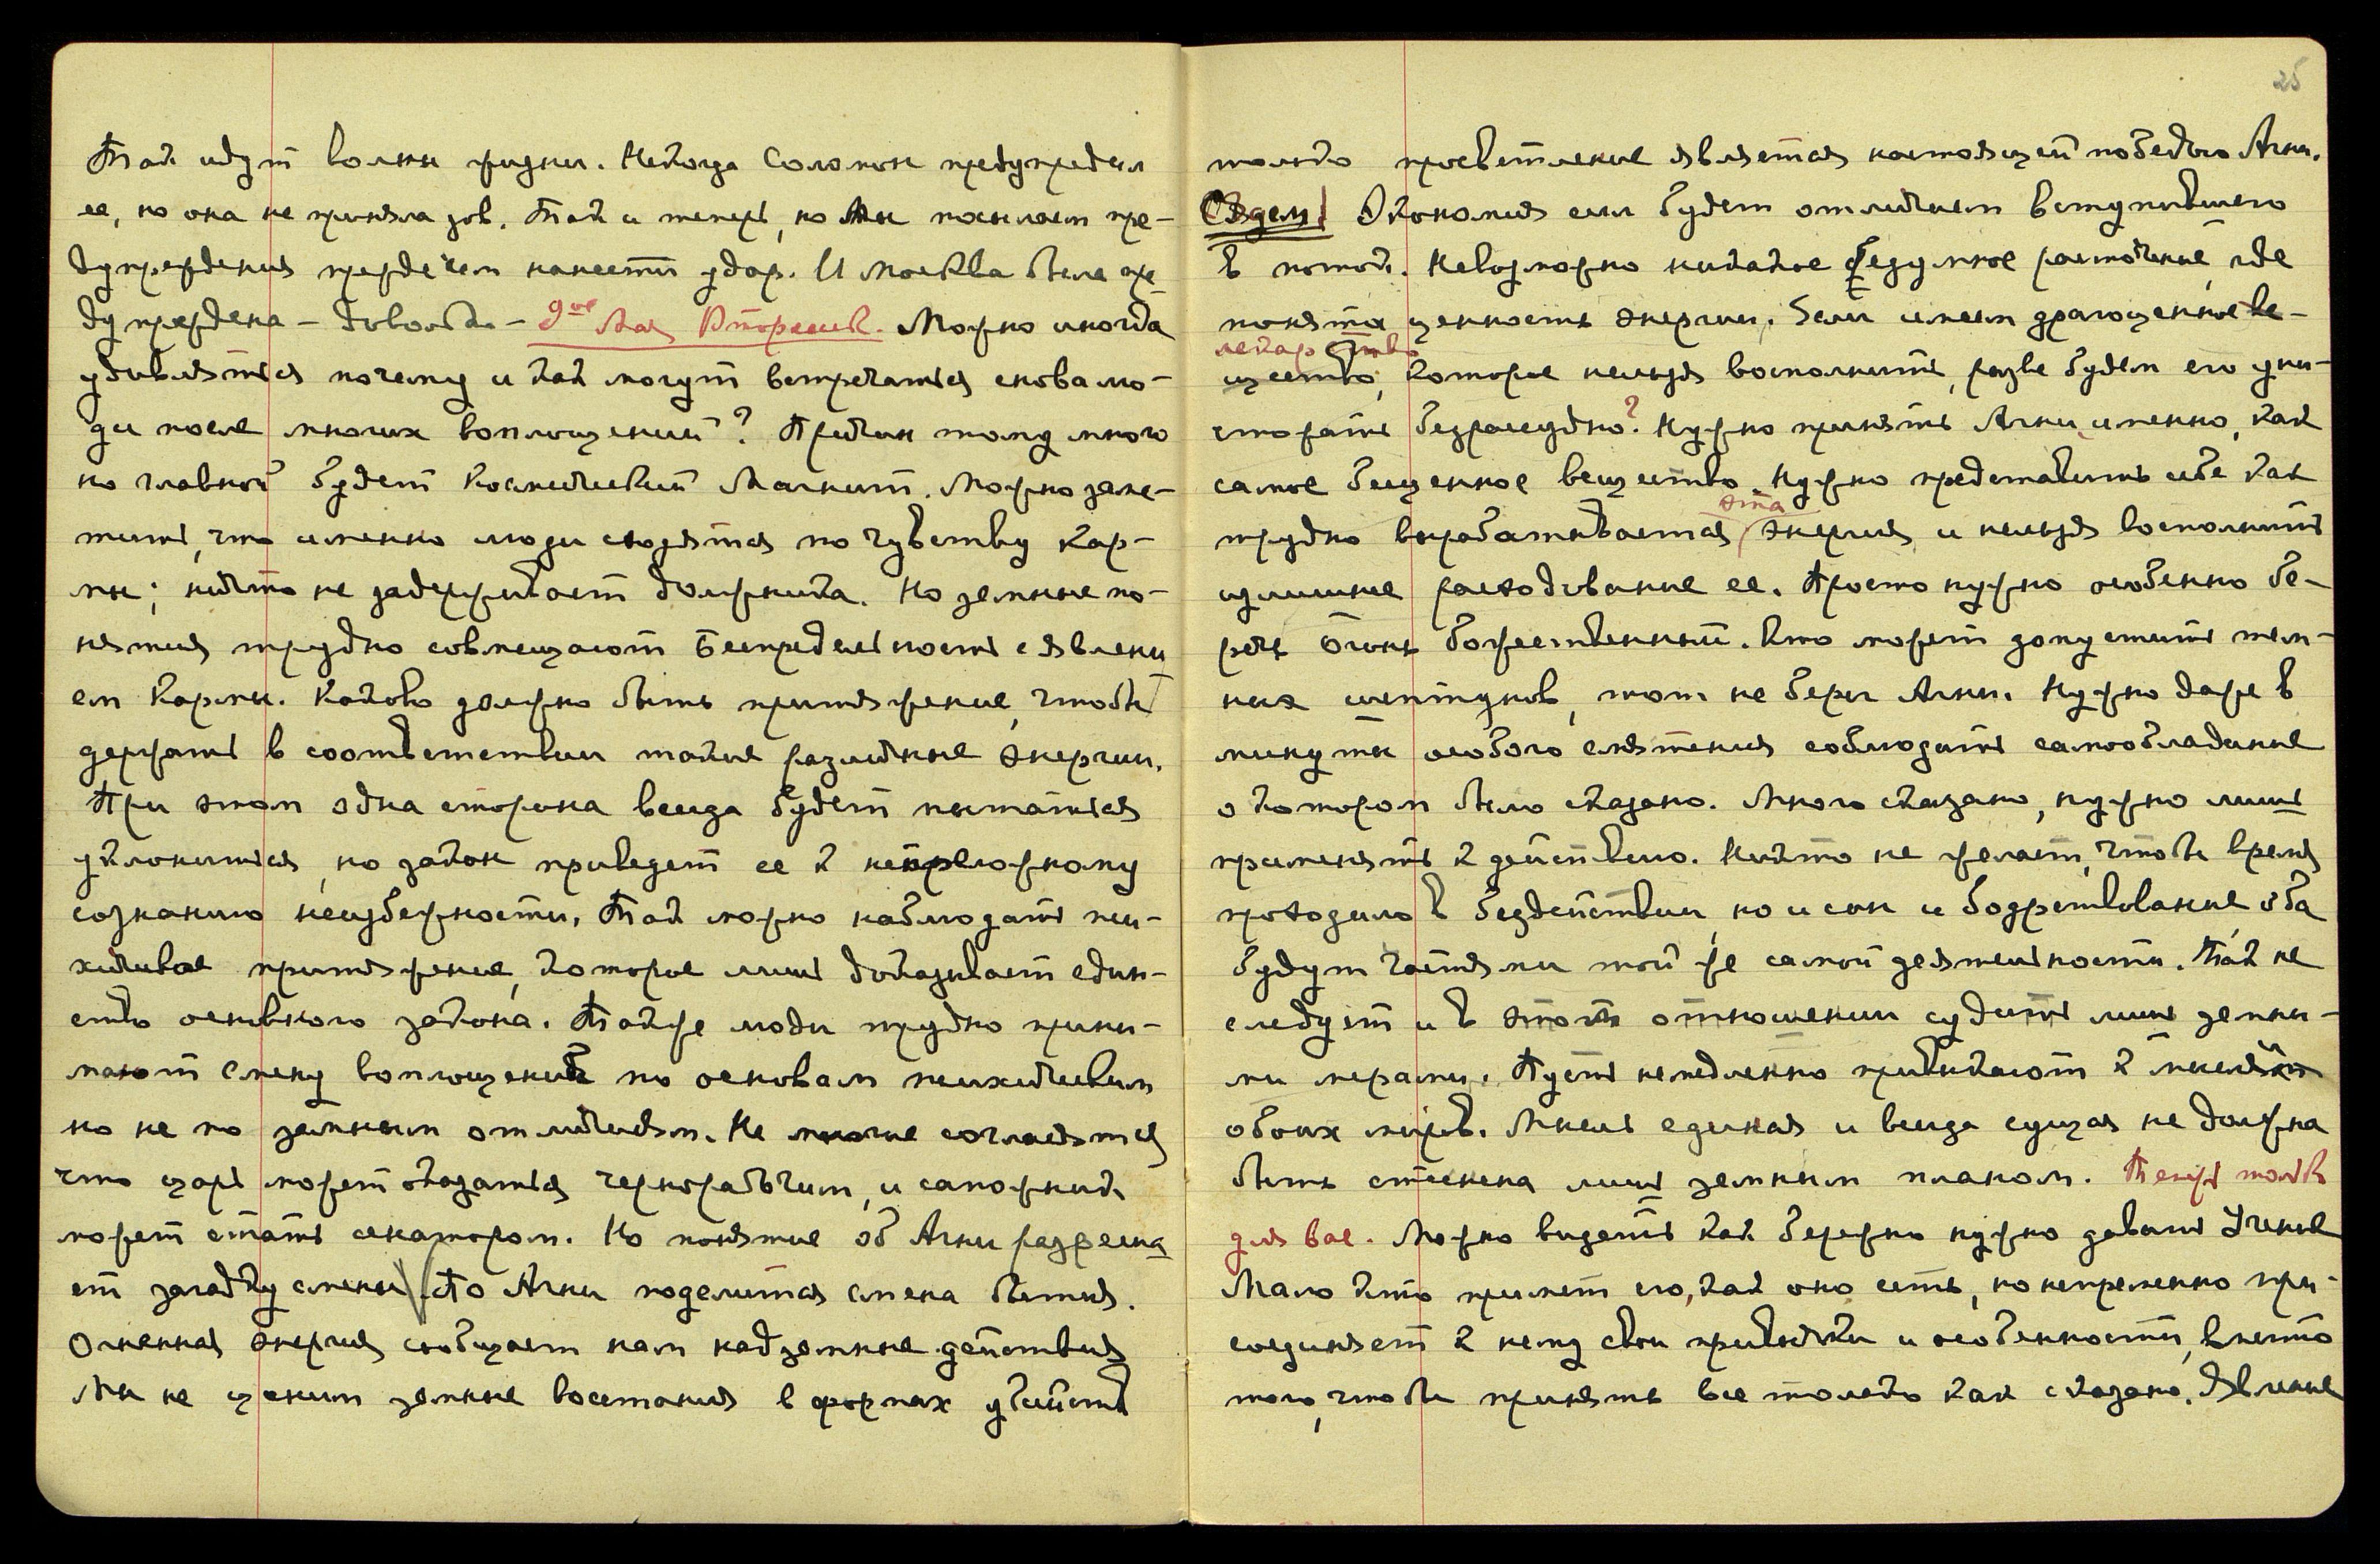 Так идут волны жизни. Некогда Соломон предупредил
ее, но она не приняла зов. Так и теперь, но Мы посылаем пре-
дупреждения прежде чем нанести удар. И Москва была пре-
дупреждена – довольно – 9ое Мая Вторник. Можно иногда
удивляться почему и как могут встречаться снова лю-
ди после многих воплощений? Причин тому много
но главной будет Космический Магнит. Можно заме-
тить, что именно люди сходятся по чувству кар-
мы; ничто не задерживает должника. Но земные по-
нятия трудно совмещают Беспредельность с явлени
ем Кармы. Каково должно быть притяжение, чтобы
держать в соответствии такие различные энергии.
При этом одна сторона всегда будет пытаться
уклониться, но закон приведет ее к непреложному
сознанию неизбежности. Так можно наблюдать пси-
хическое притяжение, которое лишь доказывает един-
ство основного закона. Также люди трудно прини-
мают смену воплощений по основам психическим
но не по земным отличиям. Не многие согласятся
что царь может оказаться чернорабочим, и сапожник
может стать сенатором. Но понятие об Агни разреша
ет загадку смены. По Агни поделится смена бытия.
Огненная энергия сообщает нам надземные действия
Мы не ценим земные восстания в формах убийств
25
только просветление является настоящей победою Агни.
Экономия сил будет отличием вступившего
в поток. Невозможно никакое безумное расточение, где
понята ценность энергии. Если имеем драгоценное ве-
лекарство
щество, которое нельзя восполнить, разве будем его уни-
чтожать безрассудно? Нужно принять Агни, именно, как
самое бесценное вещество. Нужно представить себе как
эта
трудно вырабатывается энергия и нельзя восполнить
излишнее расходование ее. Просто нужно особенно бе-
речь Огонь божественный. Кто может допустить тем-
ных шептунов, тот не берег Агни. Нужно даже в
минуты особого смятения соблюдать самообладание
о котором было сказано. Много сказано, нужно лишь
применять к действию. Никто не желает, чтобы время
проходило в бездействии, но и сон и бодрствование оба
будут частями той же самой деятельности. Так не
следует и в этом отношении судить лишь земны-
ми мерами. Пусть немедленно привыкают к мысли
обоих миров. Мысль единая и всегда сущая не должна
быть стеснена лишь земным планом. Теперь только
для вас. Можно видеть как бережно нужно давать Учение
Мало кто примет его, как оно есть, но непременно при-
соединяет к нему свои привычки и особенности, вместо
того, чтобы принять все только как сказано. Явление